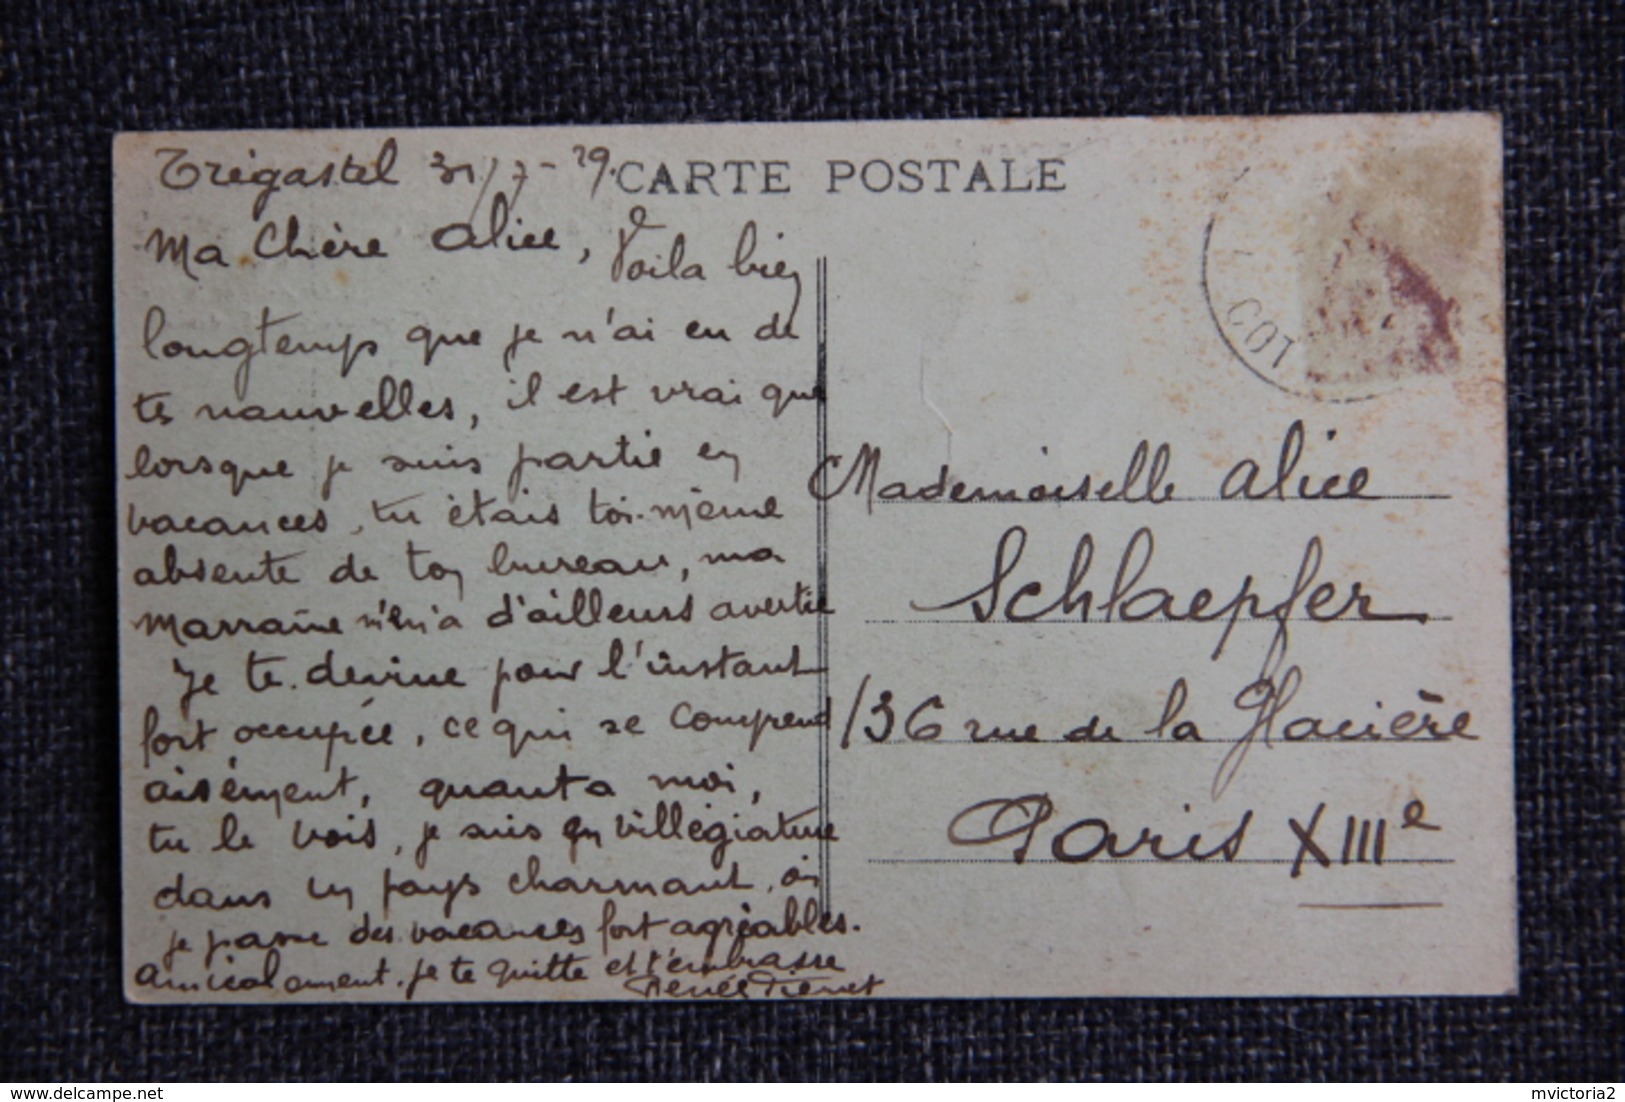 Trégastel 31/7-29.
CARTE POSTALE
Ma Chère Alice, Voila bien
longtemps que je n'ai eu de
tes nouvelles, il est vrai que
lorsque je suis partie en
vacances, tu étais toi-même
absente de ton bureau, ma
Marraine m'en a d'ailleurs avertie
Je te devine pour l'instant
fort occupée, ce qui se comprend
aisément, quant a moi,
tu le vois, je suis en villégiature
dans un pays charmant, où
je passe des vacances fort agréables.
Amicalement. je te quitte et t'embrasse
Renée Pierret
Mademoiselle Alice
Schlaepfer
136 rue de la Glacière
Paris XIIIe
mvictoria2